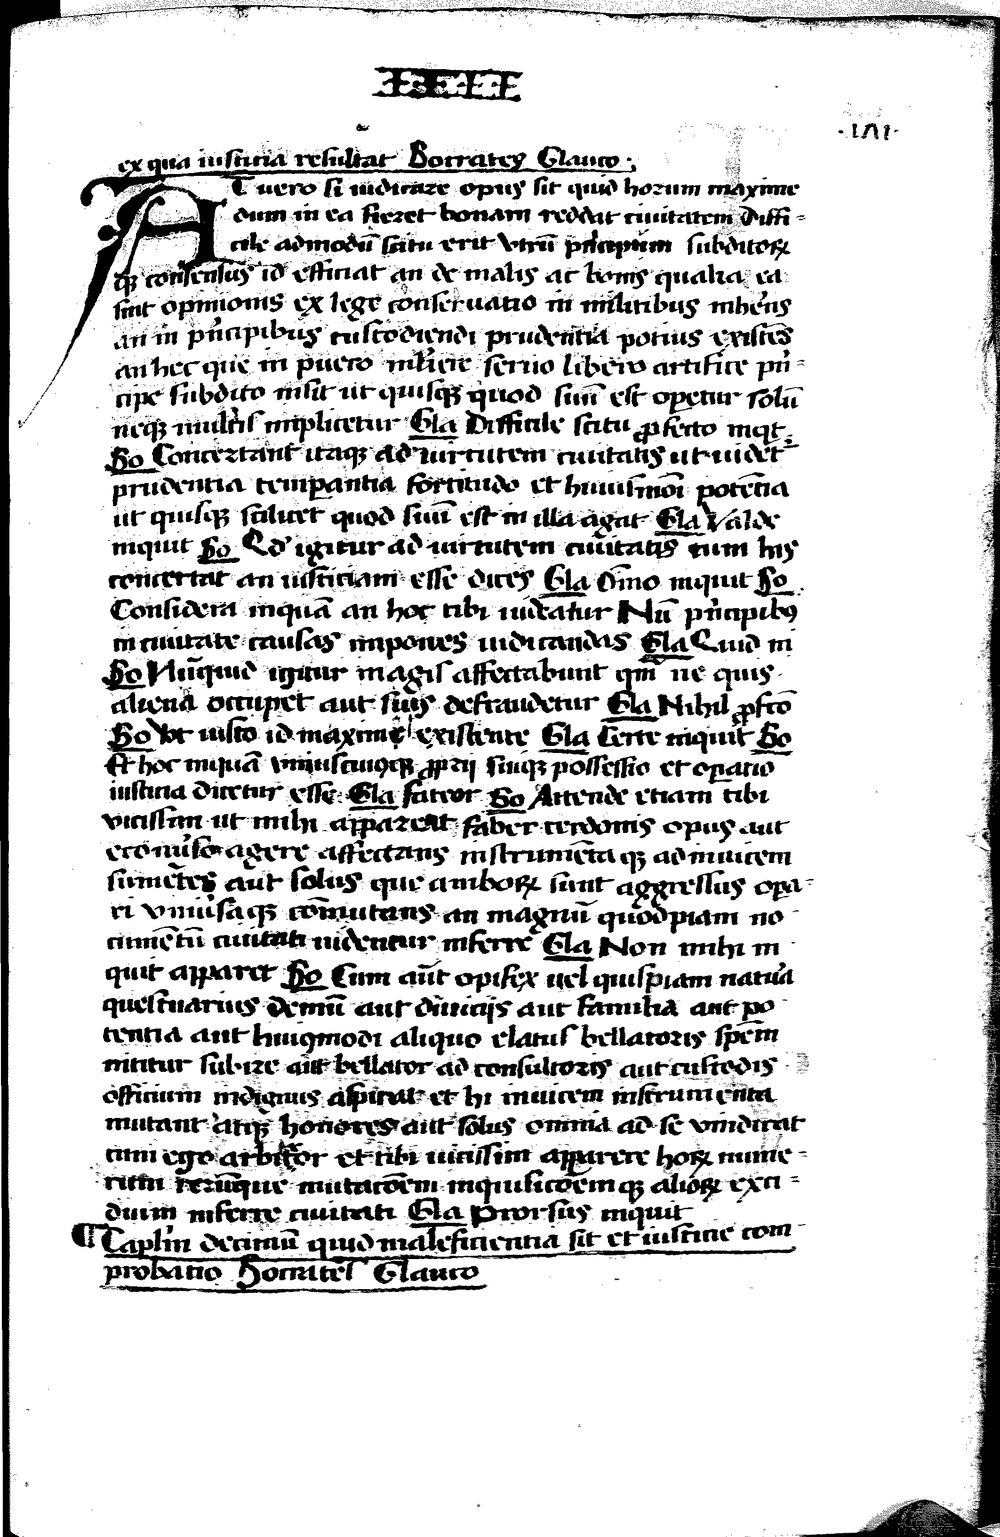 ·LVI·
ex qua iusticia resultat Socrates Glauco
AT vero si iudicare opus sit quid horum maxime
dum in ea fieret bonam reddat ciuitatem Diffi-
cile admodū scitu erit Vtrū pͥncipum subditoꝝ
qꝫ consensus id efficiat an de malis ac bonis qualia ea
sint opinionis ex lege conseruatio in militibus inhe᷒ns
an in pͥncipibus custodiendi prudentia potius existēs
an hec que in puero mulͥere seruo libero artifice pͥn-
cipe subdito insit ut quisqꝫ quod suū est operetur solū
neqꝫ multis implicetur Gla Difficile scitu ꝓfecto inqt
So Concertant itaqꝫ ad uirtutem ciuitatis ut uidet᷒
prudentia temꝑantia fortitudo et huiusmōi potētia
ut quisqꝫ scilicet quod suū est in illa agat Gla Valde
inquit So Qd' igitur ad uirtutem ciuitatis cum his
concertat an iusticiam esse dices Gla Oīno inquit So
Considera inquā an hoc tibi uideatur Nū pͥncipibꝰ
in ciuitate causas impones iudicandas Gla Quid ni
So Nūquid igitur magis affectabunt qm̄ ne quis
aliena occupet aut suis defraudetur Gla Nihil ꝓfcō
So Vt iusto id maxime existente Gla Certe inquit So
Et hoc inquā vniuscuiꝰqꝫ ꝓprij suiqꝫ possessio et oꝑatio
iusticia dicetur esse Gla fateor So Attende etiam tibi
vicissim ut mihi appareat faber cerdonis opus aut
agere affectans instrumēta qꝫ ad inuicem
sumētes aut solus que amboꝝ sunt aggressus oꝑa-
ri vniu᷒saqꝫ cōmutans an magnū quodpiam no
cumētū ciuitati uidentur inferre Gla Non mihi in
quit apparet So Cum aūt opifex uel quispiam natura
questuarius demū aut diuicijs aut familia aut po
tentia aut huiꝰmodi aliquo elatus bellatoris spēm
nititur subire aut bellator ad consultoris aut custodis
officium indignus aspirat et hi inuicem instrumenta
mutant atqꝫ honores aut solus omnia ad se vindicat
tum ego arbitror et tibi uicissim apparere hoꝝ nume-
rum rerumque mutacōem inquisicōemqꝫ alioꝝ exci-
dium inferre ciuitati Gla Prorsus inquit
¶Caplm̄ decimū quid maleficientia sit et iusticie com
probatio Socrates Glauco